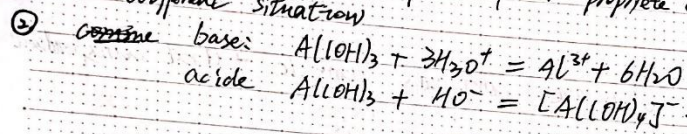 situation
② base: Al(OH)3 + 3H3O+ = Al3+ + 6H2O
acide Al(OH)3 + HO- = [Al(OH)4]-